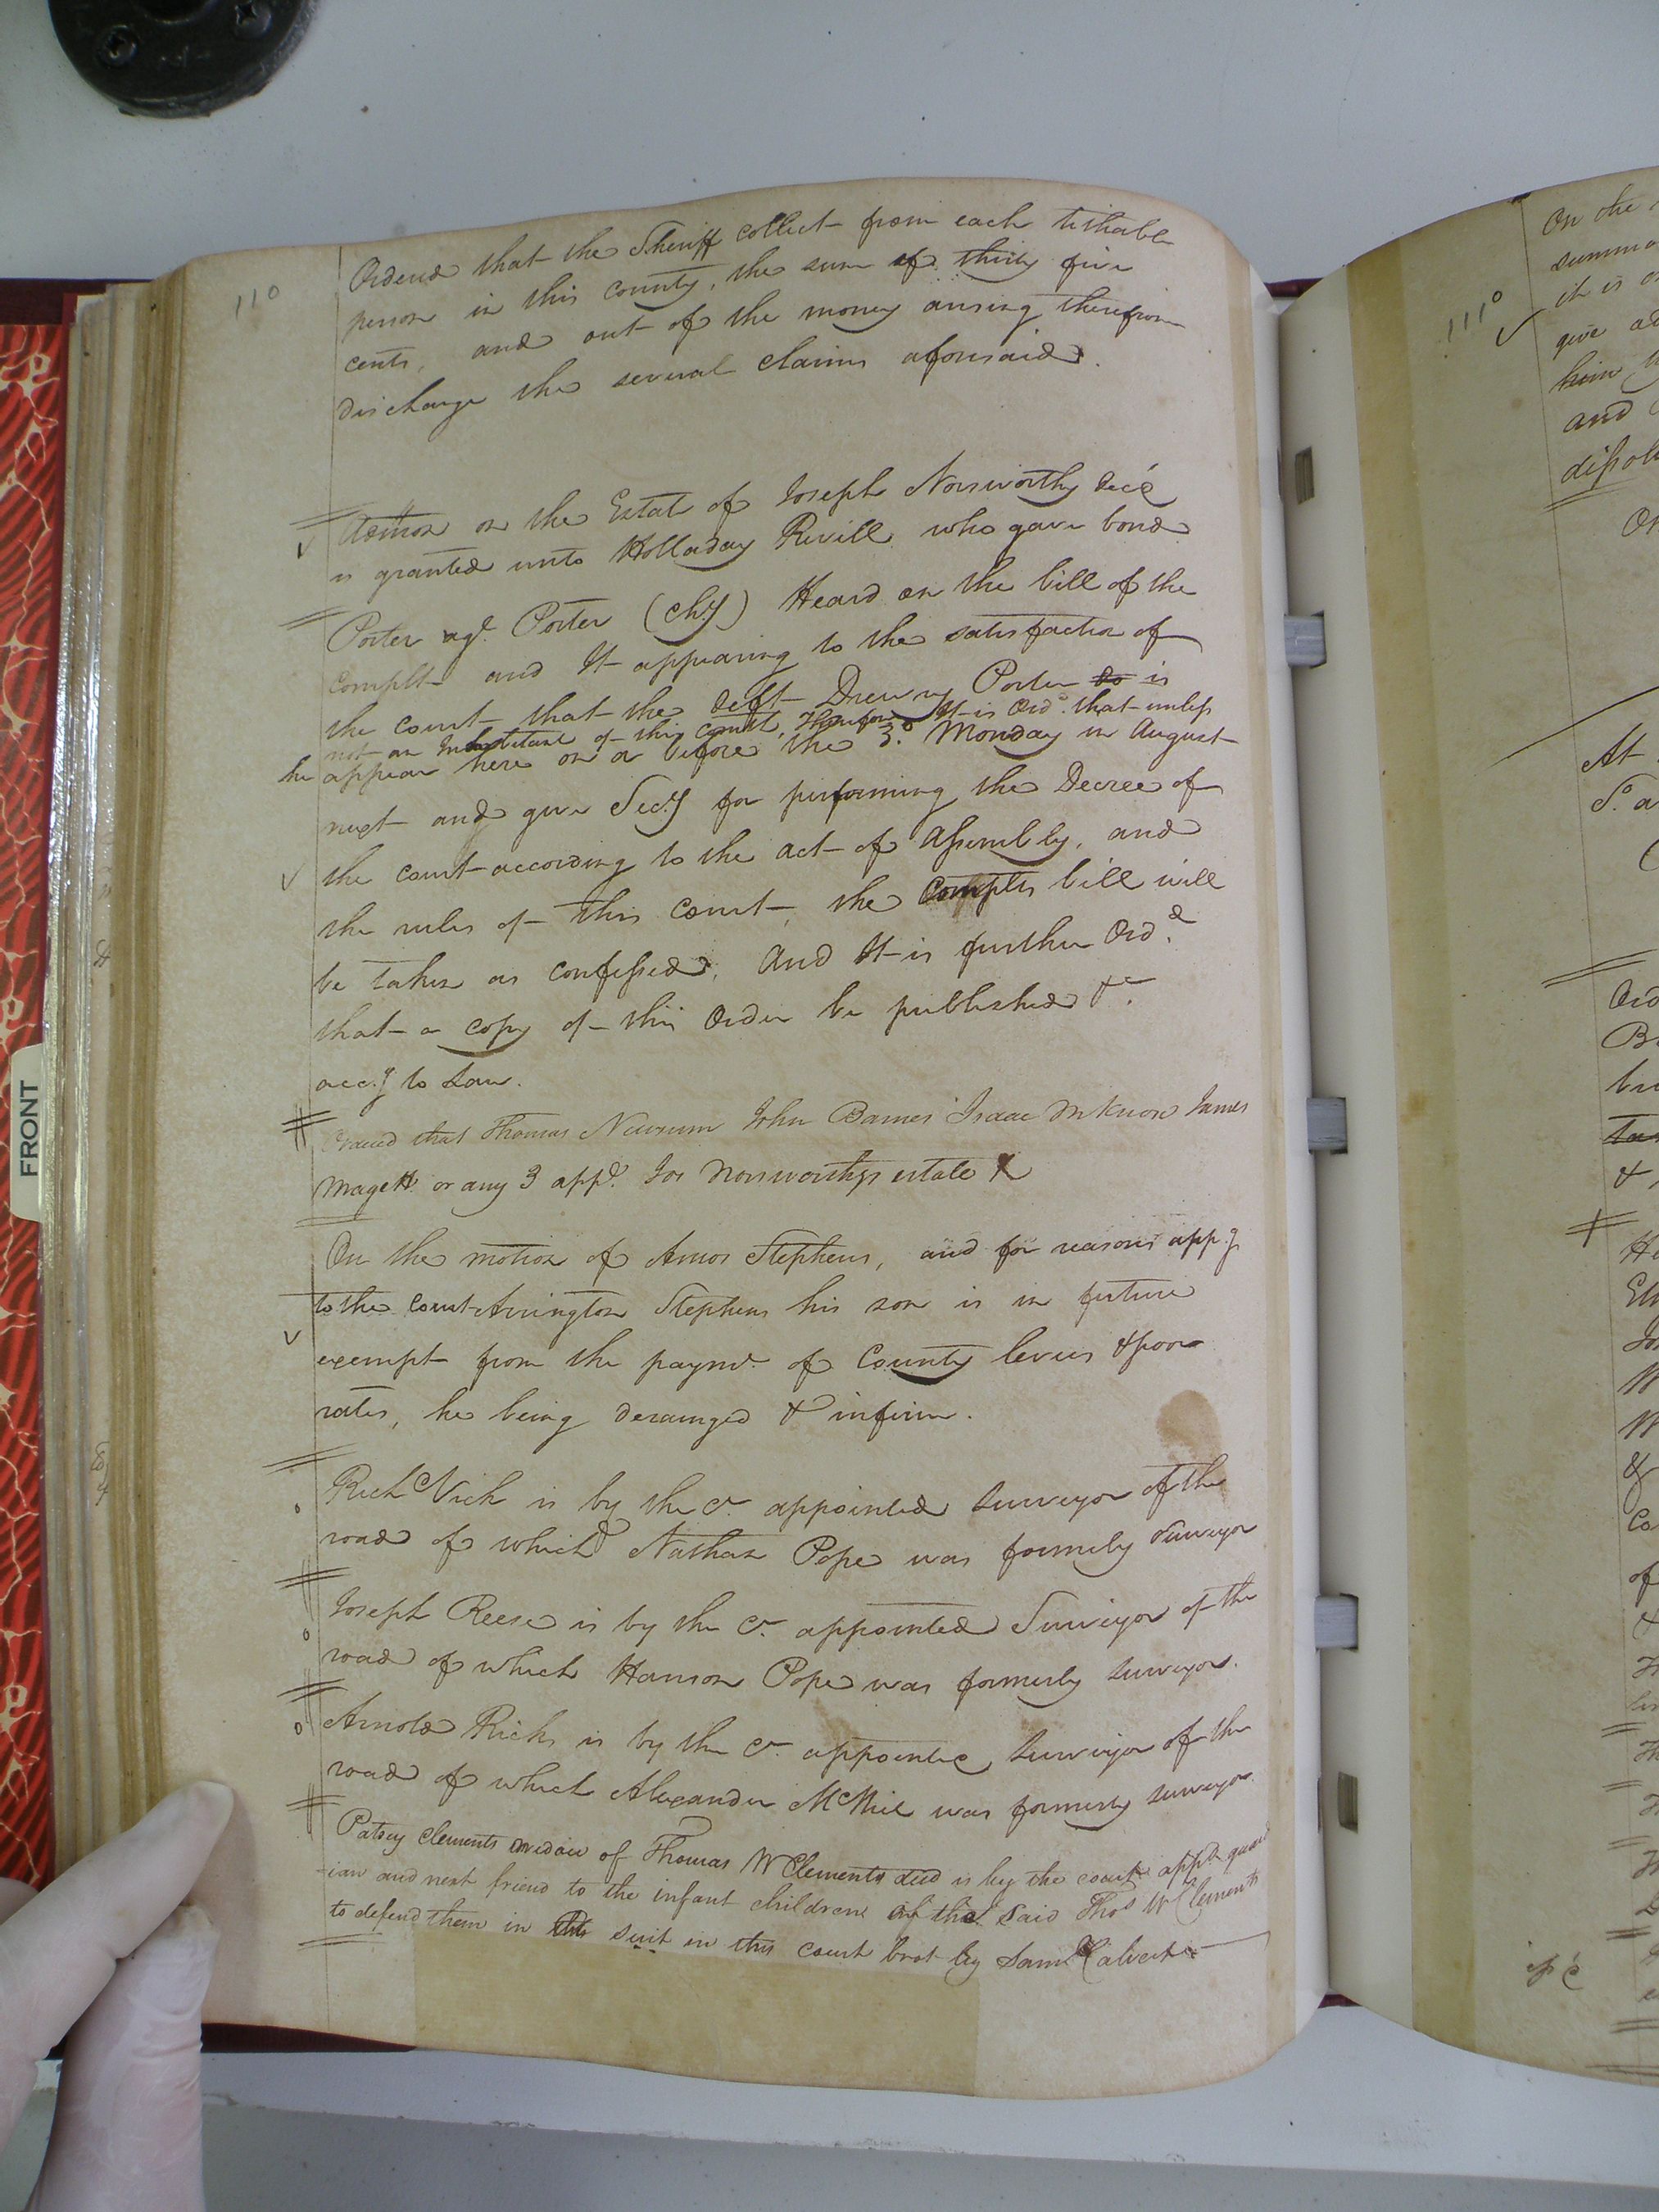 110
Ordered that the Sheriff collect from each tithable
person in this county, the sum of thirty five
cents, and out of the money arising therefrom
discharge the several claims aforesaid.
Admon on the Estate of Joseph Norsworthy dec'd
is granted unto Holladay Revill who gave bond
Porter agt. Porter (chy) Heard on the bill of the
Complt and It appearing to the satisfaction of
the court that the deft Drewry Porter do is
not an Inhabitant of this , Therefore It is Ord. that unless
he appear here on or before the 3d. Monday in August
next and give Secy for performing the Decree of
the court according to the act of Assembly, and
the rules of this Court, the Complts bill will
be taken as confessed, and It is further Ord.d
that a copy of this Order be published &c.
accg to Law.
Ordered that Thomas Newsum John Barnes Isaac James
Magett or any 3 appd. Jos Norsworthys estate
On the motion of Amos Stephens, and for reasons appg.
to the Court Arrington Stephens his son is in future
exempt from the paymt. of County levies & poor
rates, he being deranged & infirm.
Richd Vick is by the Ct. appointed surveyor of the
road of which Nathan Pope was formerly surveyor
Joseph Reese is by the Ct. appointed Surveyor of the
road of which Hanson Pope was formerly surveyor.
Arnold Ricks is by the Ct. appointed surveyor of the
road of which Alexander McNiel was formerly surveyor.
Patsey Clements widow of Thomas W Clements decd is by the court appd guard
-ian and next friend to the infant children of the said Thos W Clements
to defend them in suit in this court brot by Saml Calvert
FRONT
111
On the
summo
it is o
give
him
and
On
At
Ord